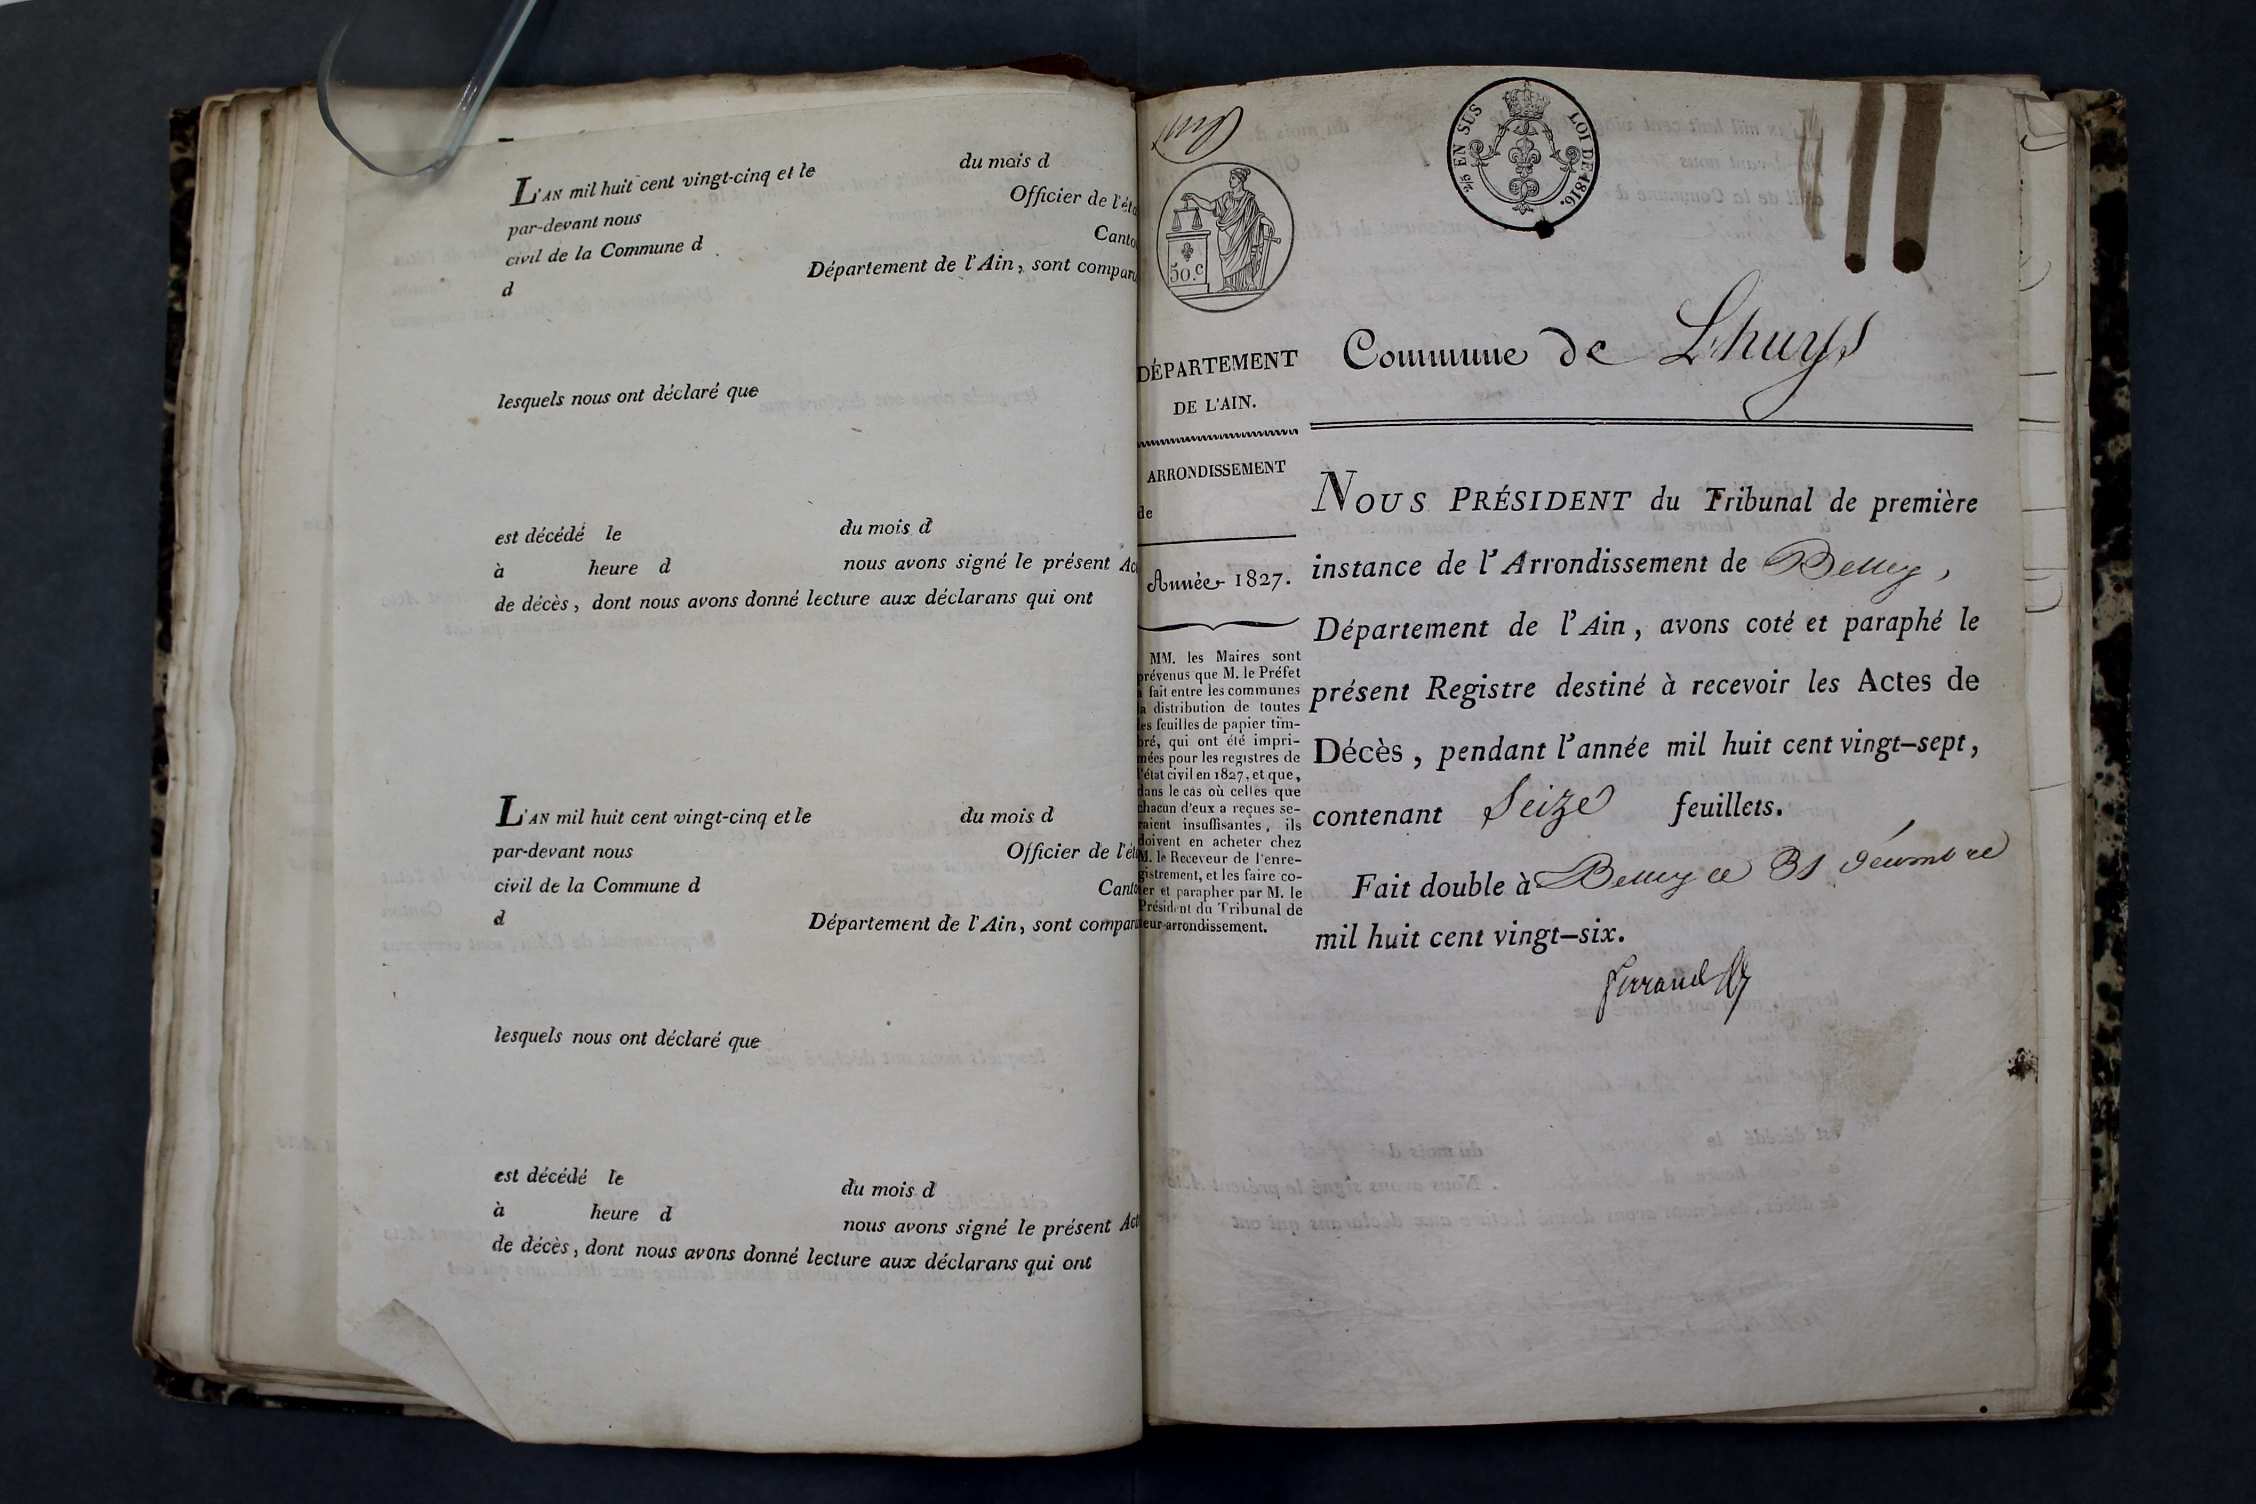 L'AN mil huit cent vingt-cinq et le du mois d
par-devant nous Officier de l'éta
civil de la Commune d Canto
d Département de l'Ain, sont comparu
lesquels nous ont déclaré que
est décédé le du mois d
à heure d nous avons signé le présent Ac
de décès, dont nous avons donné lecture aux déclarans qui ont
L'AN mil huit cent vingt-cinq et le du mois d
par-devant nous Officier de l'éta
civil de la Commune d Canto
d Département de l'Ain, sont compar
lesquels nous ont déclaré que
est décédé le du mois d
à heure d nous avons signé le présent Act
de décès, dont nous avons donné lecture aux déclarans qui ont
2/5 EN SUS LOI DE 1816.
50.c
DÉPARTEMENT
DE L'AIN.
ARRONDISSEMENT
de
Année 1827.
MM. les Maires sont
prévenus que M. le Préfet
a fait entre les communes
la distribution de toutes
les feuilles de papier tim-
bré, qui ont été impri-
mées pour les registres de
l'état civil en 1827, et que,
dans le cas où celles que
chacun d'eux a reçues se-
raient insuffisantes, ils
doivent en acheter chez
M. le Receveur de l'enre-
gistrement, et les faire co-
ter et parapher par M. le
Président du Tribunal de
leur arrondissement.
Commune de Lhuys
NOUS PRÉSIDENT du Tribunal de première
instance de l'Arrondissement de Belley,
Département de l'Ain, avons coté et paraphé le
présent Registre destiné à recevoir les Actes de
Décès, pendant l'année mil huit cent vingt-sept,
contenant Seize feuillets.
Fait double à Belley ce 31 décembre
mil huit cent vingt-six.
ferrand